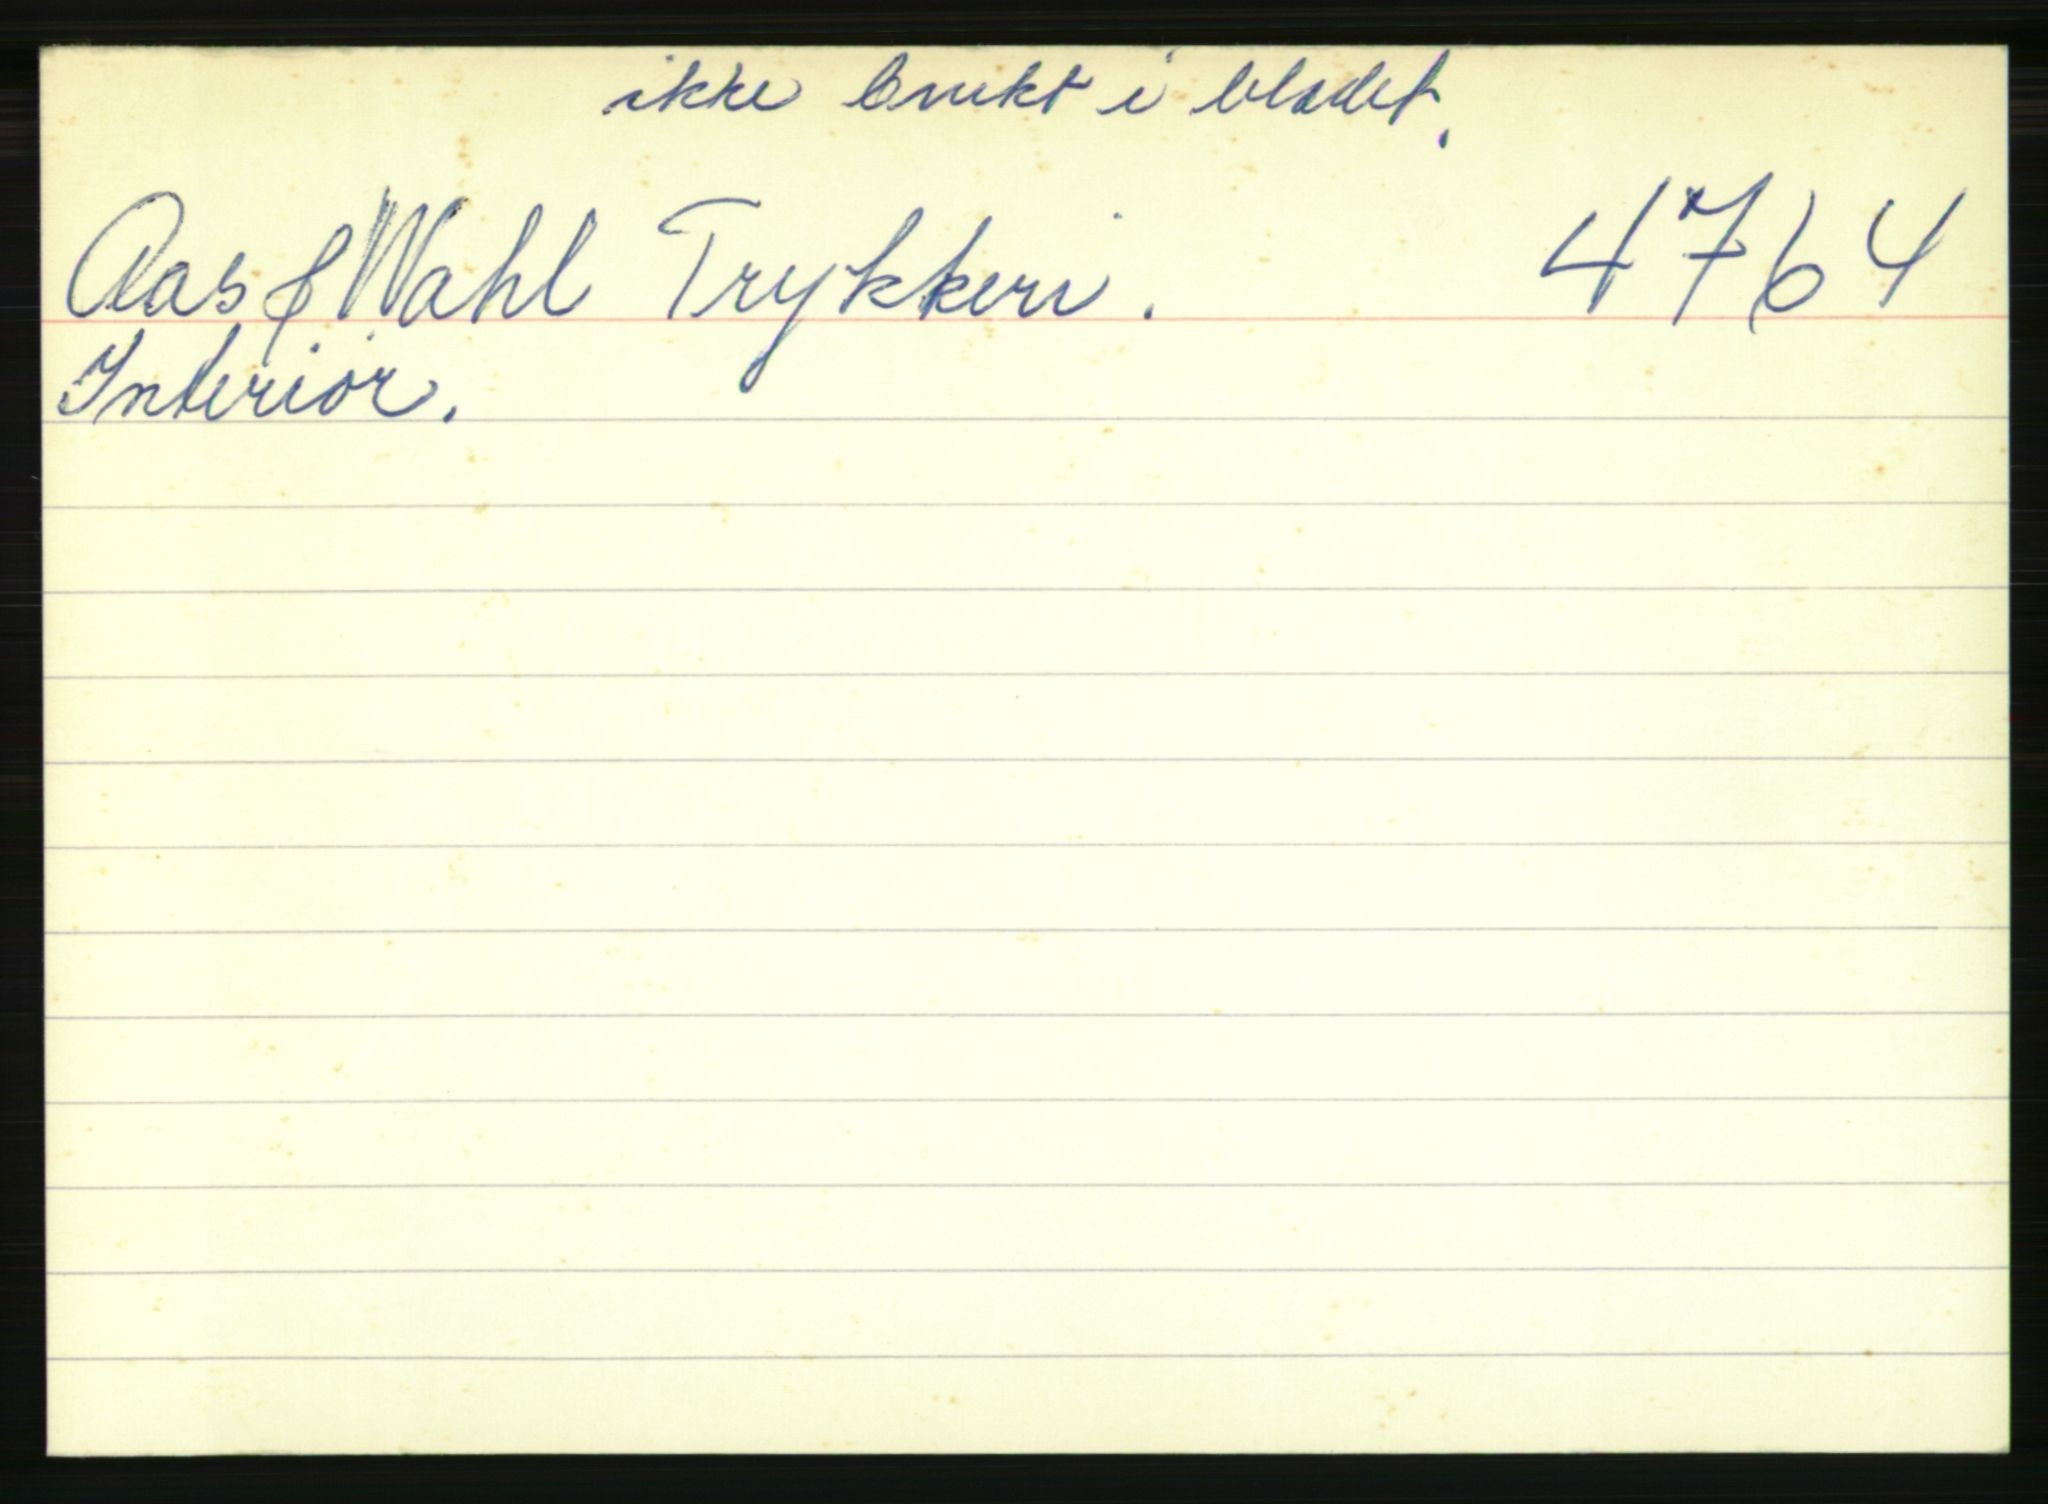 ikke brukt i bladet.
Aas & Wahl Trykkeri. 4764
Interiør.